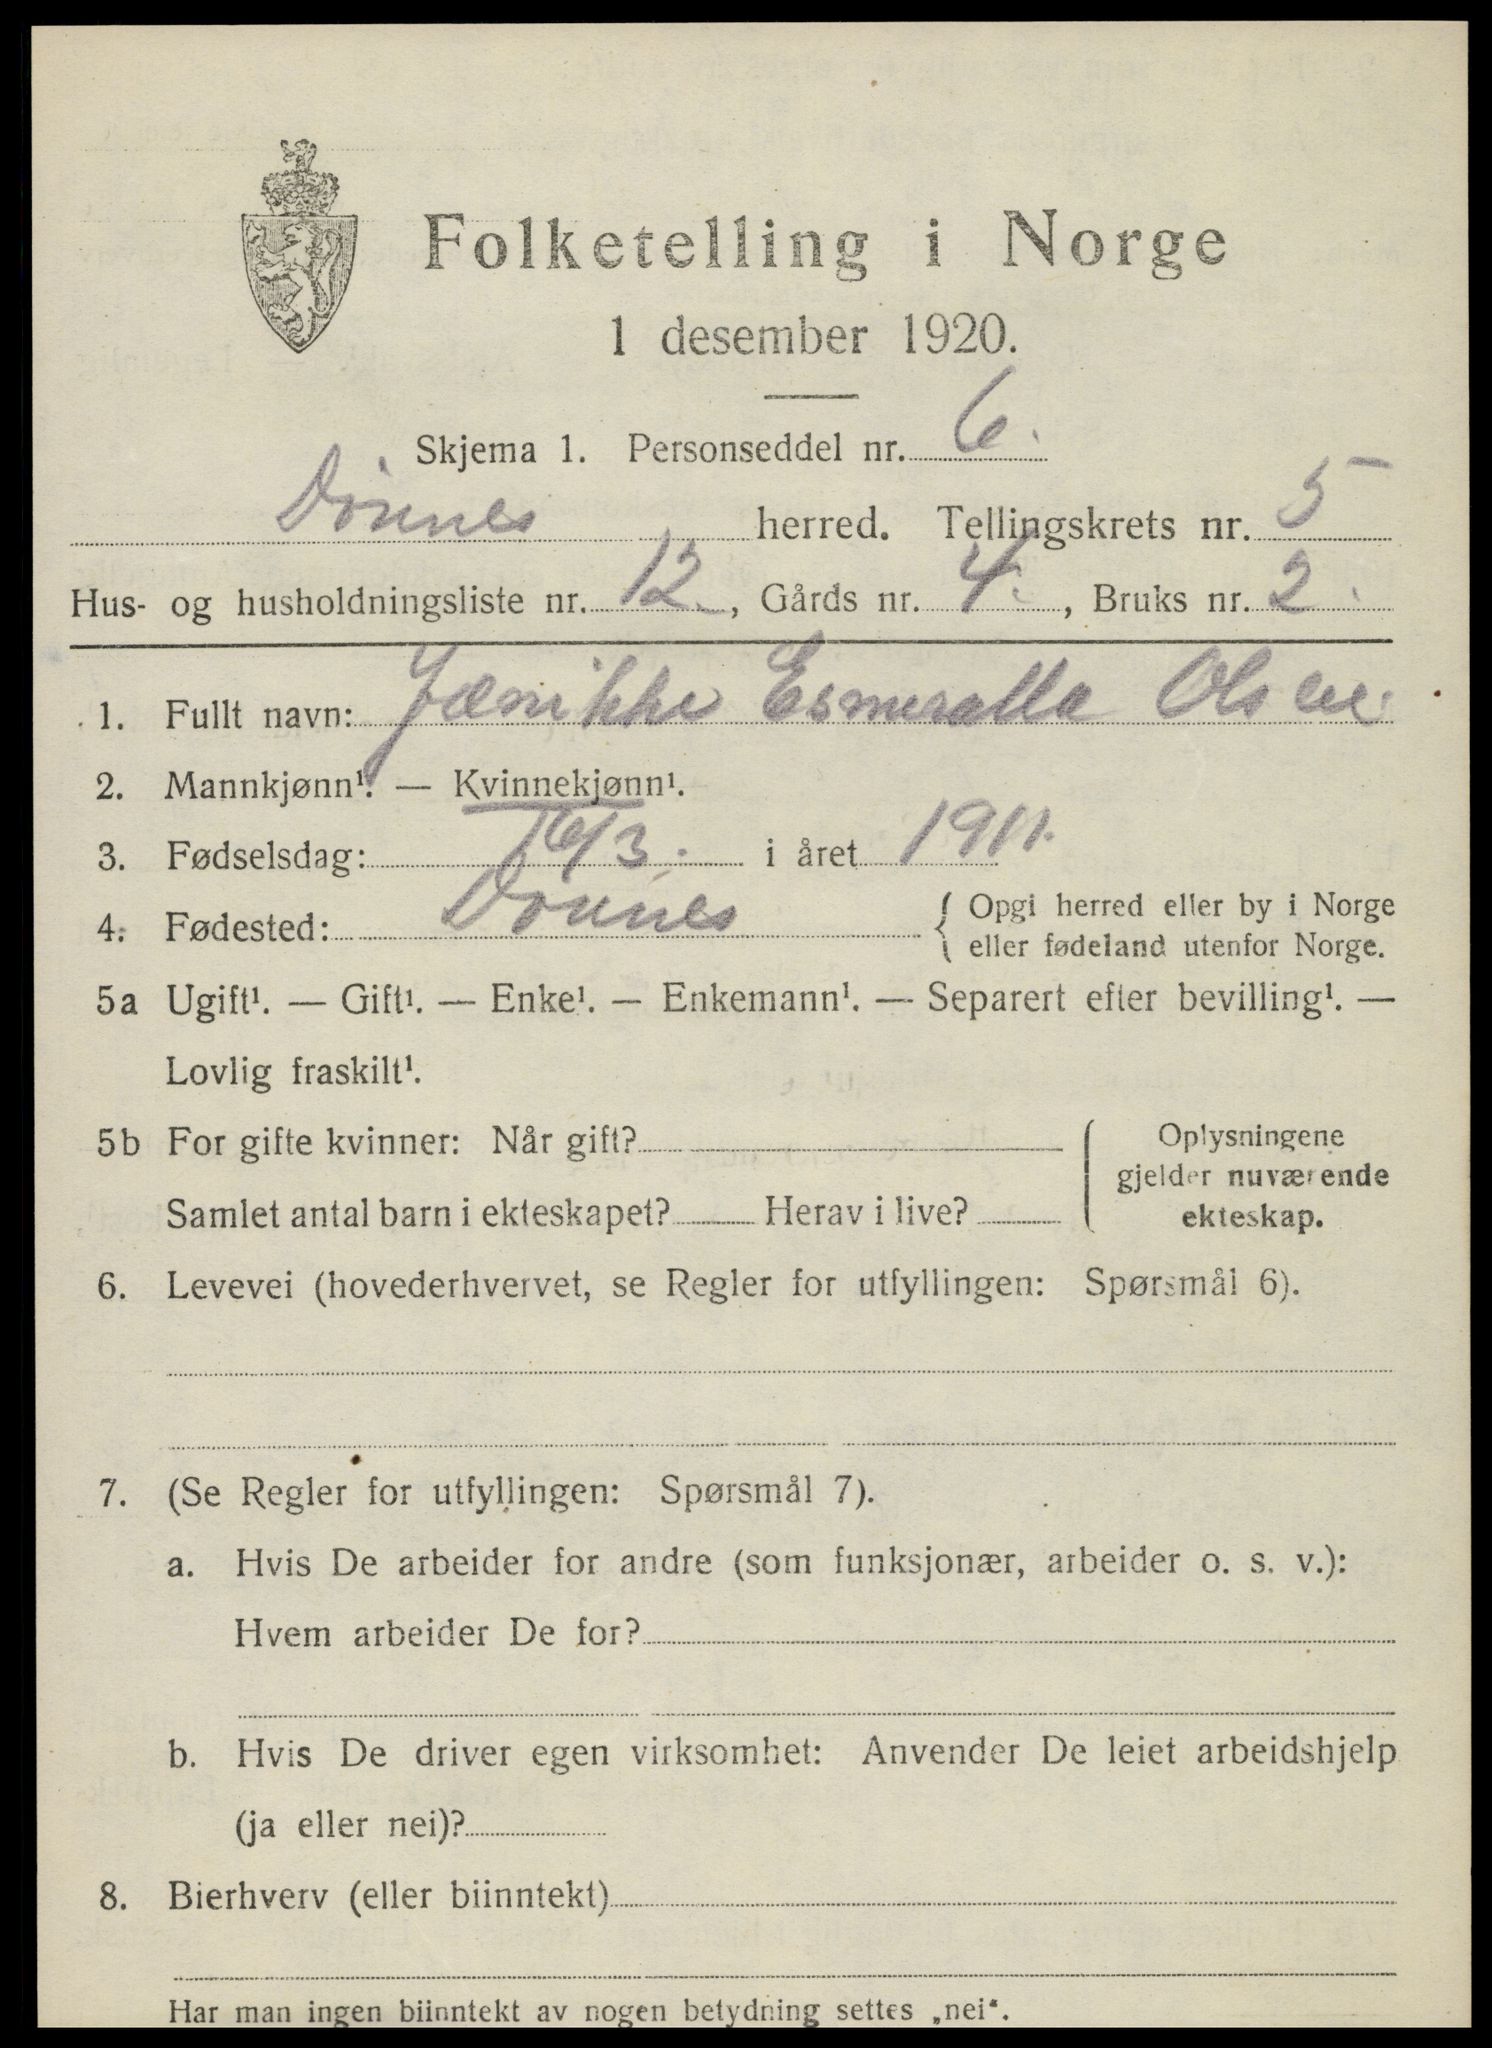 Folketelling i Norge
1 desember 1920.
Skjema 1. Personseddel nr. 6.
Dönnes herred. Tellingskrets nr. 5
Hus- og husholdningsliste nr. 12., Gårds nr. 4., Bruks nr. 2.
1. Fullt navn: Jænikke Esmeralda Olsen.
2. Mannkjønn¹. — Kvinnekjønn¹.
3. Fødselsdag: 16/3. i året 1911.
4. Fødested: Dönnes { Opgi herred eller by i Norge
eller fødeland utenfor Norge.
5a Ugift¹. — Gift¹. — Enke¹. — Enkemann¹. — Separert efter bevilling¹. —
Lovlig fraskilt¹.
5b For gifte kvinner: Når gift?
Samlet antal barn i ekteskapet? Herav i live?
Oplysningene
gjelder nuværende
ekteskap.
6. Levevei (hovederhvervet, se Regler for utfyllingen: Spørsmål 6).
7. (Se Regler for utfyllingen: Spørsmål 7).
a. Hvis De arbeider for andre (som funksjonær, arbeider o. s. v.):
Hvem arbeider De for?
b. Hvis De driver egen virksomhet: Anvender De leiet arbeidshjelp
(ja eller nei)?
8. Bierhverv (eller biinntekt)
Har man ingen biinntekt av nogen betydning settes „nei“.